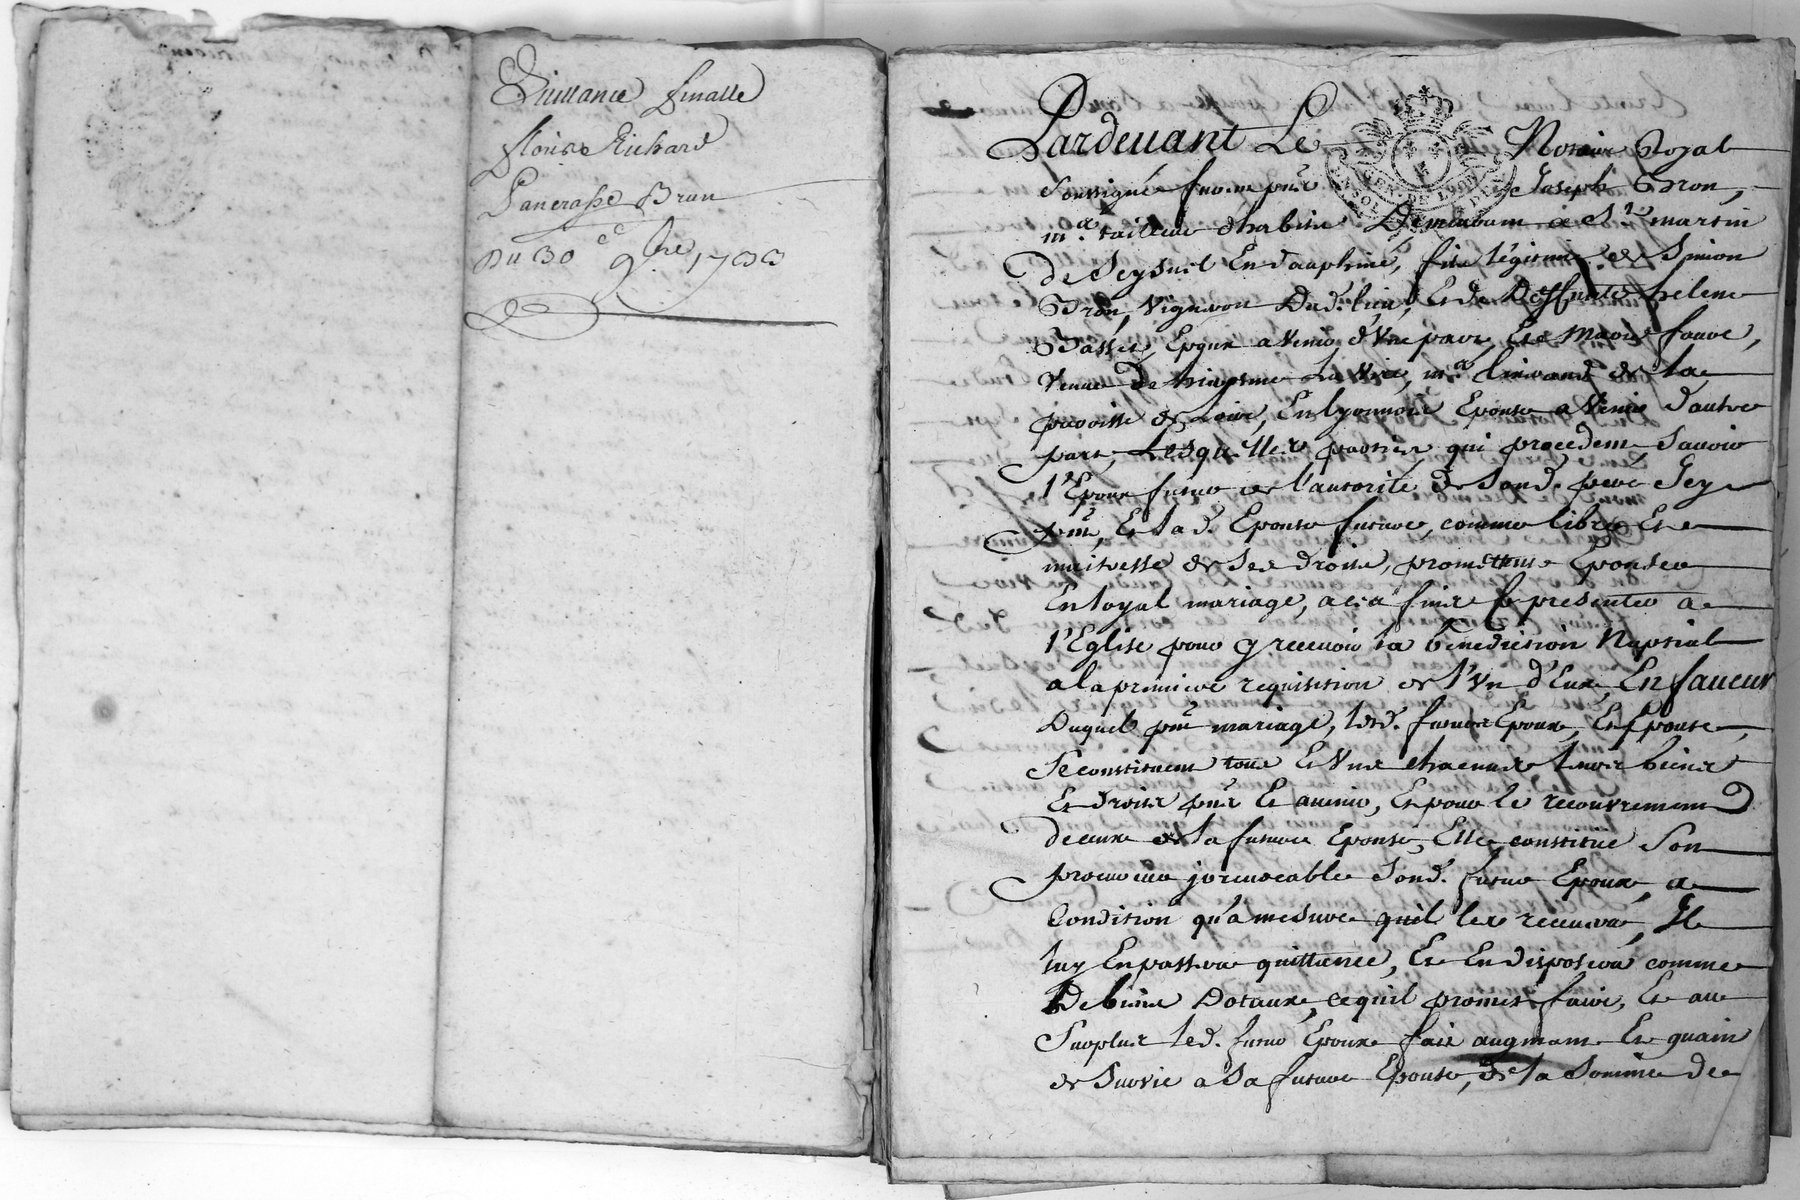 Quittance finalle
fleurie Richard
Pancrasse Brun
Du 30e 9bre 1733
Pardevant Le Notaire Royal
Soussigné furent pnts Joseph Bron,
md. tailleur d'habits Demeurant a St. martin
de Seyssuel En dauphiné, fils légitime de Simon
Bron, vigneron Dud. lieu, Et de Deffunte helene
Basset, Epoux a venir d'une part, Et Marie faure,
veuve De vivant md. de la
paroisse de Loire, En lyonnois Epouse a venir d'autre
part, Lesquelles parties qui procedent, Scavoir
l'Epoux futur de l'autorité de Sond. pere Icy
pnt, Et lad. Epouse future, comme libre Et
maitresse de Ses droits, promettent Epouser
En loyal mariage, a ces fins Se presenter a
l'Eglise pour y recevoir la benediction Nuptial
a la premiere requisition de l'Un d'Eux, En faueur
Duquel pnt mariage, lesd. futurs Epoux, Et Epouse,
Se constituent tous Et Uns chacuns leurs biens
Et droits pnts Et avenir, Et pour le recouvrement
de ceux de la future Epouse, Elle constitue Son
procureur jrrevocable Sond. futur Epoux, a
Condition qu'a mesure quil les recevra, Il
luy En passera quittance, Et En disposera comme
De biens Dotaux, ce quil promet faire, Et au
Surplus led. futur Epoux fait augment Et guain
de Survie a Sa future Epouse, de la Somme de